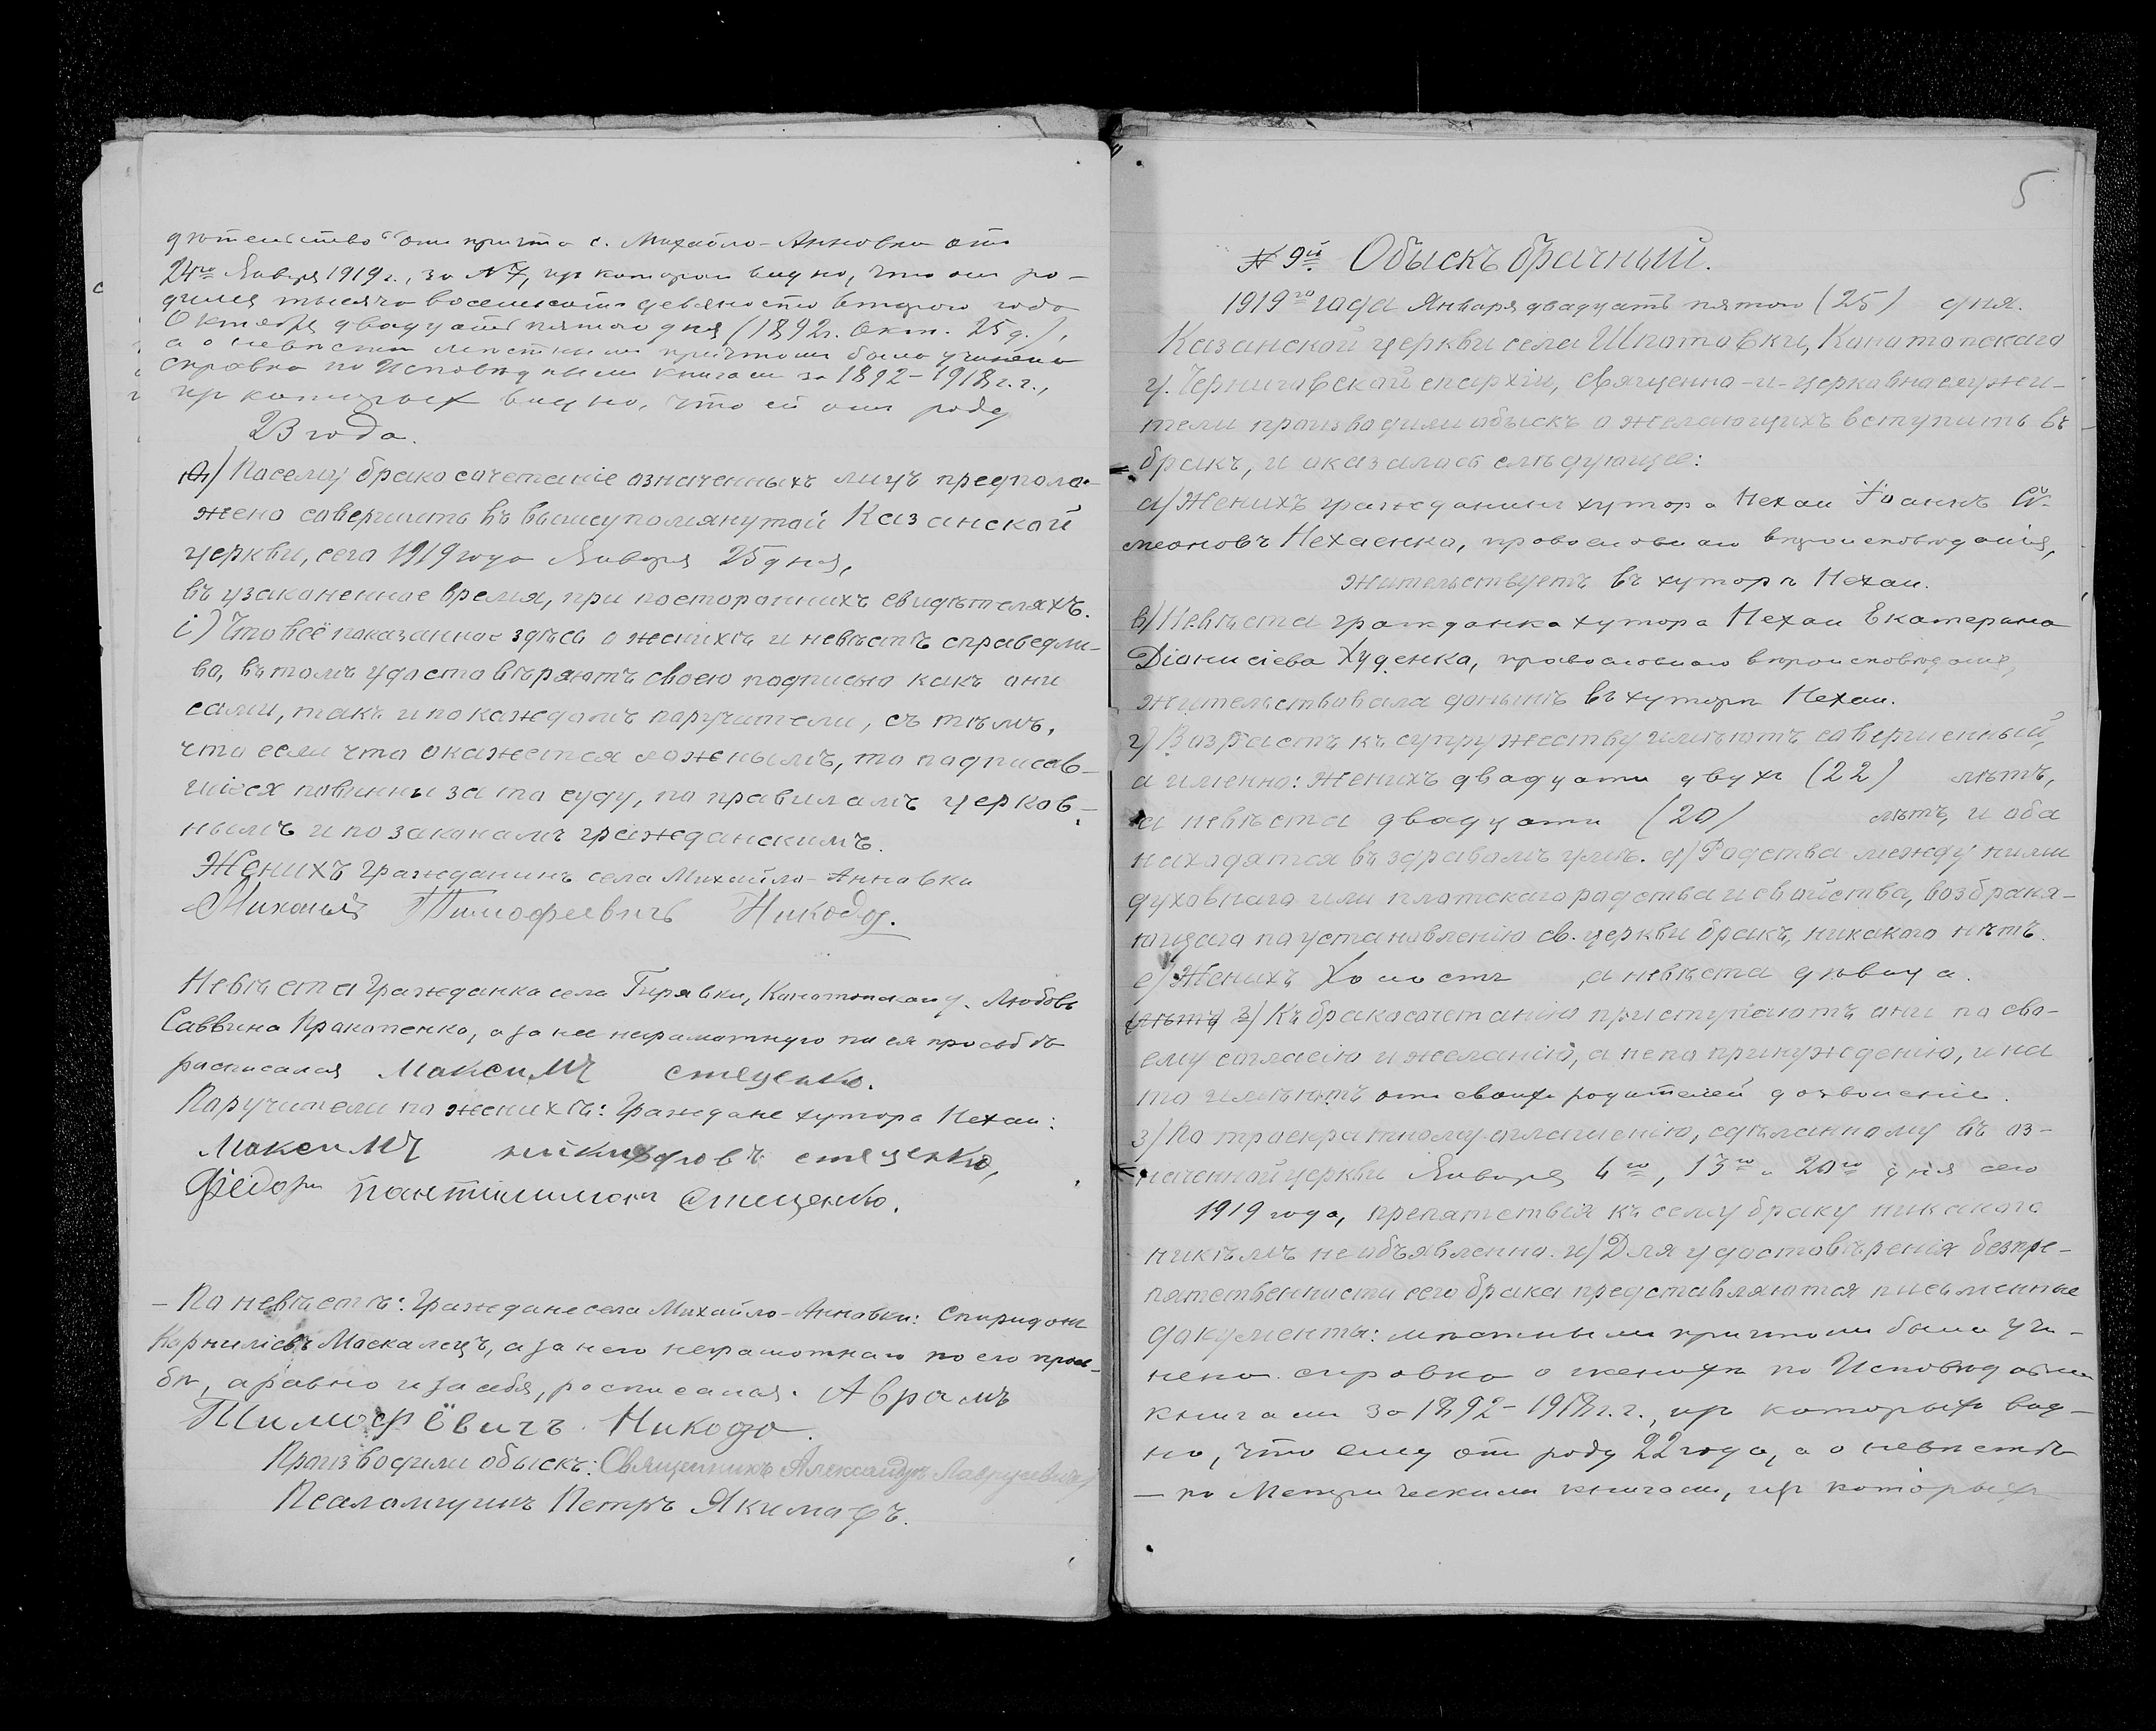 дѣтельство отъ причта с. Михайло-Анновки отъ
24го Января 1919 г., за № 7, изъ котораго видно, что онъ ро-
дился тысяча восемьсотъ девяносто второго года
Октября двадцать пятаго дня (1892 г. Окт. 25 д.),
а о невѣстѣ мѣстнымъ причтомъ была учинена
справка по Исповѣднымъ книгамъ за 1892-1918 г.г.,
изъ которыхъ видно, что ей отъ роду
23 года.
Посему бракосочетаніе означенныхъ лицъ предполо-
жено совершить въ вышеупомянутой Казанской
церкви, сего 1919 года Января 25 дня,
въ узаконенное время, при постороннихъ свидѣтеляхъ.
і) Что всё показанное здѣсь о женихѣ и невѣстѣ справедли-
во, въ томъ удостовѣряютъ своею подписью какъ они
сами, такъ и по каждомъ поручители, съ тѣмъ,
что если что окажется ложнымъ, то подписав-
шіеся повинны за то суду, по правиламъ церков-
нымъ и по законамъ гражданскимъ.
Женихъ гражданинъ села Михайло-Анновки
Михаилъ Тимофеевичъ Никодо.
Невѣста гражданка села Гирявки, Конотопскаго у. Любовь
Саввина Прокопенко, а за нее неграмотную по ея просьбѣ
расписался Максимъ стеценко.
Поручители по женихѣ: Граждане хутора Нехаи:
Максимъ никифровъ стеценко,
Фіёдоръ пантилимонъ Стеценко.
- По невѣстѣ: Граждане села Михайло-Анновки: Спиридонъ
Корниліевъ Москалецъ, а за него неграмотнаго по его прось-
бѣ, а равно и за себя, росписался. Аврамъ
Тимофёвичъ Никодо.
Производили обыскъ: Священникъ Александръ
Псаломщикъ Петръ Якимахъ.
5
№ 9й. Обыскъ брачный.
1919го года Января двадцать пятаго (25) дня.
Казанской церкви села Шпотовки, Конотопскаго
у. Черниговской епархіи, священно-и-церковнослужи-
тели производили обыскъ о желающихъ вступить въ
бракъ, и оказалось слѣдующее:
а) Женихъ гражданинъ хутора Нехаи Іоаннъ Си-
меоновъ Нехаенко, православнаго вѣроисповѣданія,
жительствуетъ въ хуторѣ Нехаи.
в) Невѣста гражданка хутора Нехаи Екатерина
Діонисіева Худенко, православнаго вѣроисповѣданія,
жительствовала донынѣ въ хуторѣ Нехаи.
г) Возрастъ къ супружеству имѣютъ совершенный,
а именно: женихъ двадцати двухъ (22) лѣтъ,
а невѣста двадцати (20) лѣтъ, и оба
находятся въ здравомъ умѣ. д) Родства между ними
духовнаго или плотскаго родства и свойства, возбраня-
ющаго по установленію св. церкви бракъ, никакого нѣтъ.
е) Женихъ холостъ, а невѣста дѣвица.
Къ бракосочетанію приступаютъ они по сво-
ему согласію и желанію, а не по принужденію, и на
то имѣютъ отъ своихъ родителей дозволеніе.
з) По троекратному оглашенію, сдѣланному въ оз-
наченной церкви Января 6го, 13го и 20го дня сего
1919 года, препятствія къ сему браку никакого
никѣмъ не объявлено. и) Для удостовѣренія безпре-
пятственности сего брака представляются письменные
документы: мѣстнымъ причтомъ была учи-
нена справка о женихѣ по Исповѣднымъ
книгамъ за 1892-1918 г.г., изъ которыхъ вид-
но, что ему отъ роду 22 года, а о невѣстѣ
- по Метрическимъ книгамъ, изъ которыхъ